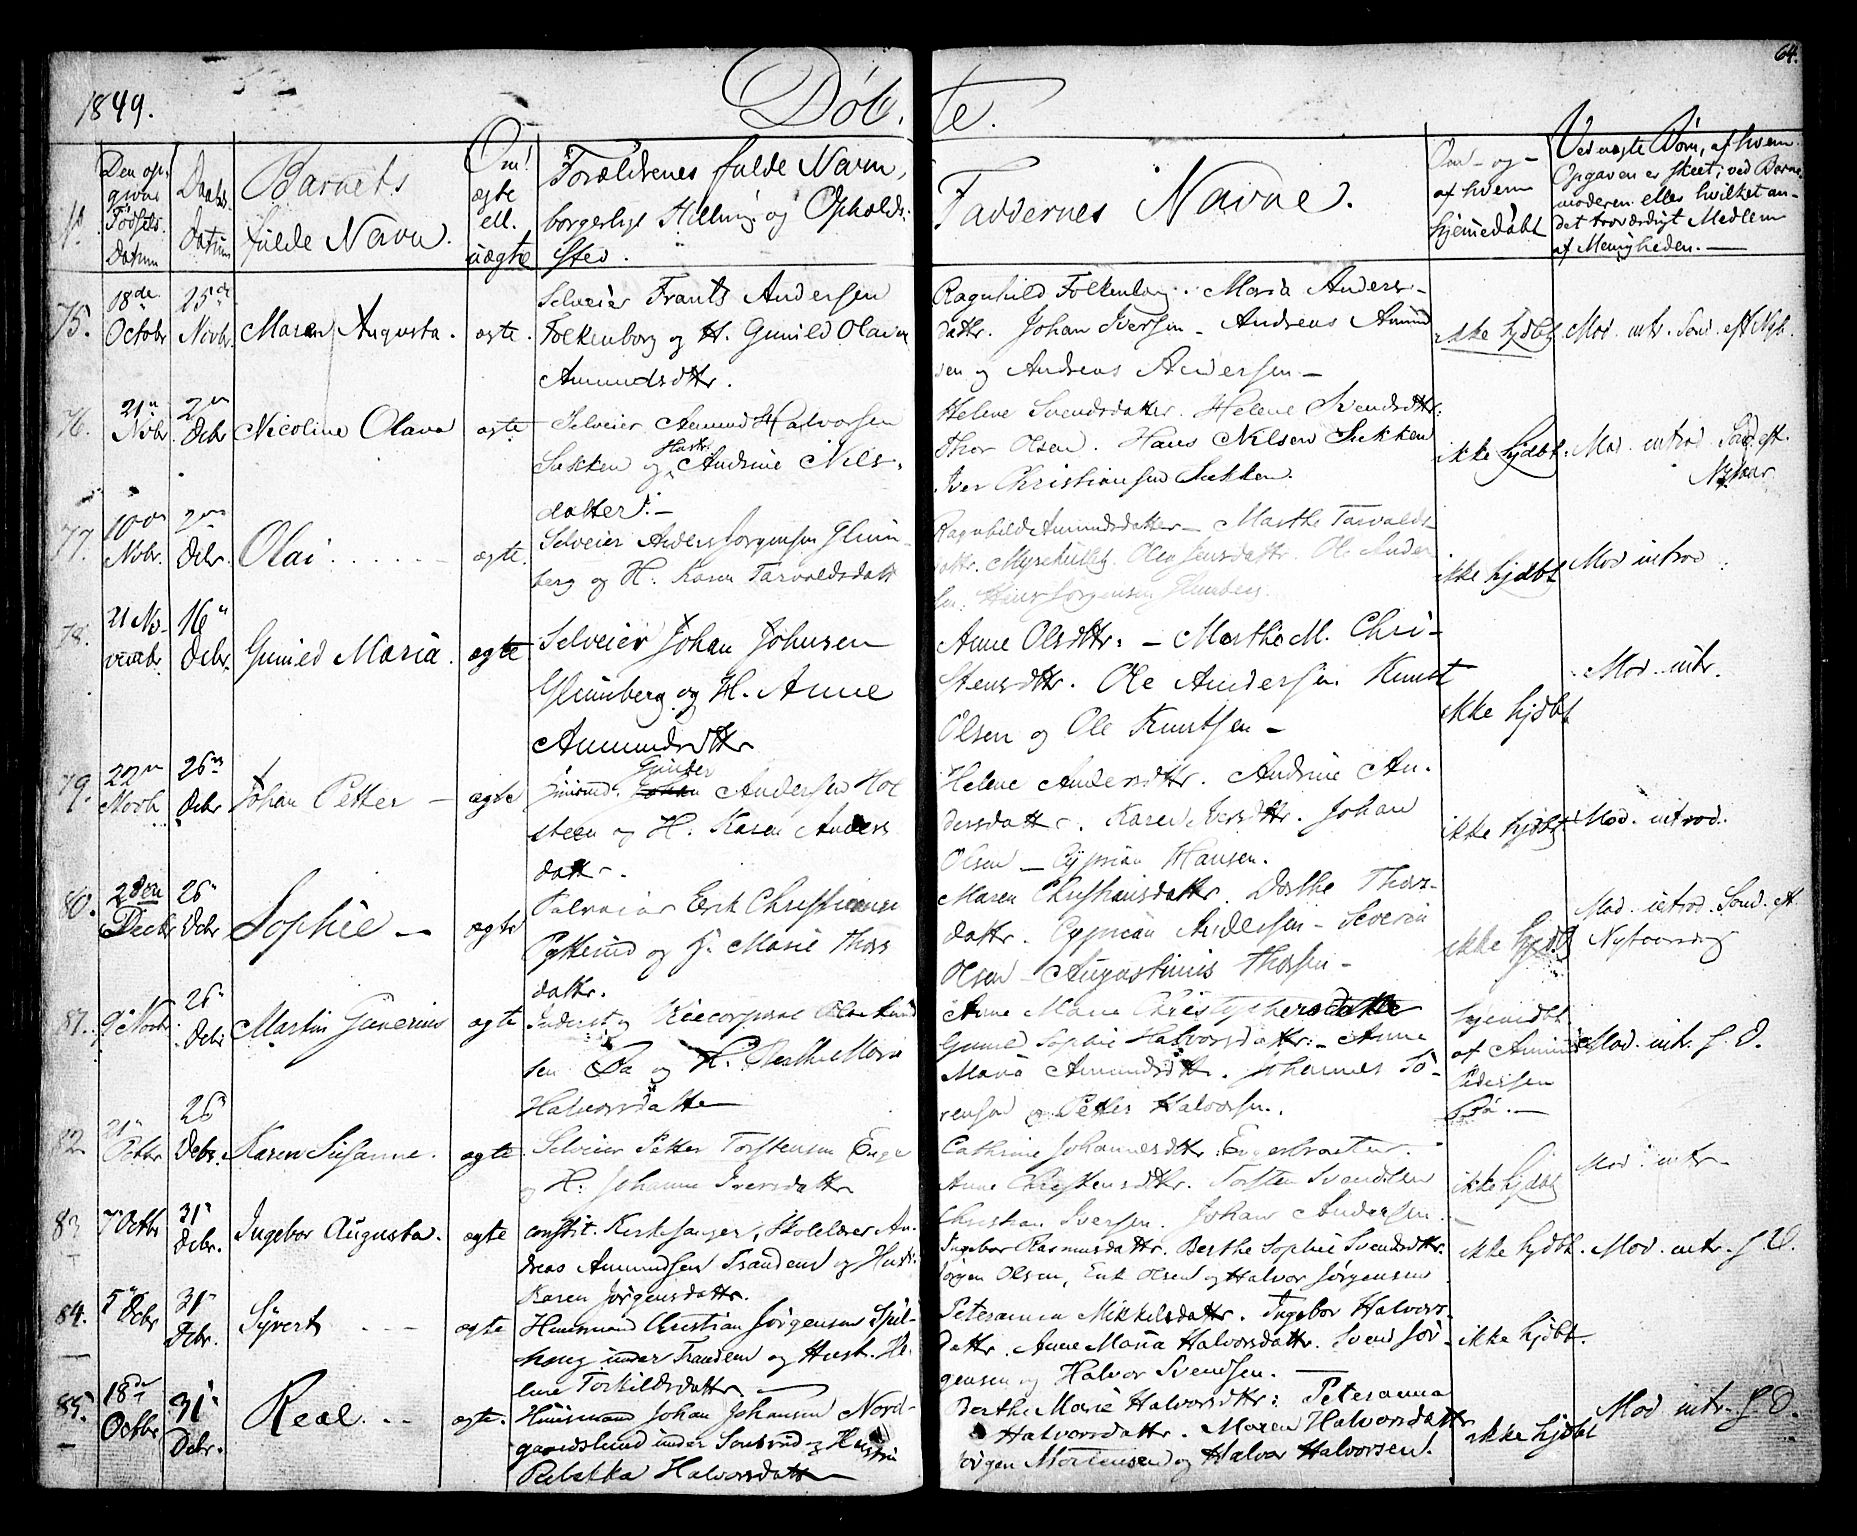 64.
1849.
Døb, te.
N.
Den op-
givne
Fødsels
Datum
Daabs
Datum
Barnets
fulde Navn.
Om
ægte
ell.
uægte
Forældrenes fulde Navn,
borgerlige Stilling og Opholds-
sted.
Faddernes Navne.
Om - og -
af hvem
hjemedøbt
Ved uægte Børn, af hvem
Opgaven er skeet, ved Barne-
moderen eller hvilket an-
det troværdigt Medlem
af Menigheden. —
75.
18de
Octobr
25de
Novbr.
Maren Augusta.
ægte.
Selveier Frants Andersen
Folkenborg og H. Gunild Olava
Amundsdttr.
Ragnhild Folkenborg. Maria Anders-
dattr. Johan Iversen - Andreas Amund
sen og Andreas Andersen -
ikke hjdbt
Mod. intr. Sønd. eft Nyt.
76.
21n
Nvbr
2n
Dcbr
Nicoline Olava
ægte
Selveier Amund Halvorsen
Sukken og Hustr. Andrine Nils-
datter. -
Helene Svendsdatter. Helene Svendsdttr.
Thor Olsen. Hans Nilsen Sukken
Iver Christiansen Sukken.
ikke hjdbt.
Mod. introd. Sønd. eft.
Nytaar
77.
10de
Nvbr.
2den
Dcbr.
Olai
ægte.
Selveier Anders Jørgensen Glim-
berg og H. Karen Tarvaldsdatt
Ragnhild Amundsdatter - Marthe Tarvalds-
dattr. Olea Jensdattr. Ole Ander
sen. Hans Jørgensen Glimberg
ikke hjdbt
Mod introd.
78.
21 No-
vembr.
16n
Dcbr.
Gunild Maria.
ægte
Selveier Johan Johnsen
Glimberg og H. Anne
Amundsdttr
Anne Olsdttr: - Marthe M. Chri-
stensdttr. Ole Andersen Knut
Olsen og Ole Knutsen -
ikke hjdbt
Mod. intr.
79.
22n
Novb.
26n
Dcbr
Johan Petter -
ægte
Gunder
Huusmd. Andersen Hol
steen og H. Karen Anders
dattr.
Helene Andersdttr. Andrine An-
dersdattr. Karen Iversdttr. Johan
Olsen - Cyprian Hansen.
ikke hjdbt
Mod. introd.
80.
2den
Decbr
26n
Dcbr
Sophie -
ægte
Selveier Erik Christiansen
og H. Marie Thors
dattr.
Maren Christiansdattr. Dorthe Thors-
dattr. Cyprian Andersen - Severin
Olsen - Augustinus Thorsen -
ikke hjdbt
Mod. introd. Sønd. eft
Nytaarsdag
81.
9n Novbr.
26n
Dcbr
Martin Gunerius
ægte
Inderst og Amund
sen Bø og H. Berthe Maria
Halvorsdatter
Anne Marie Christophersdatter
Gunild Sophie Halvorsdattr: - Anne
Maria Amundsdttr. Johannes Sø-
rensen og Petter Halvorsen.
hjemedbt
af Amund
Pedersen
Bø. -
Mod. intr. S. D.
82.
21n
Octbr
26n
Dcbr.
Karen Susanne.
ægte
Selveier Petter Torstensen Enge
og H. Johanne Iversdattr
Cathrine Johannesdttr. Engerbraaten.
Anne Christensdttr. Torsten Svendsen
Christian Iversen. Johan Andersen.
ikke hjdbt
Mod. intr -
83
7n Octbr
31n
Dcbr.
Ingebor Augusta.
ægte
constit. Kirkesanger, Skolelærer An-
dreas Amundsen Trandem og Hust:
Karen Jørgensdattr.
Ingebor Rasmusdattr. Berthe Sophie Svendsdttr.
Jørgen Olsen, Erik Olsen og Halvor Jørgensen
ikke hjdbt.
Mod. intr. S. D.
84.
5n Dcbr
31n
Dcbr.
Syvert
ægte
Huusmand Christian Jørgensen Spil-
haug under Trandem og Hust. He-
lene Torkildsdattr. -
Petersanna Mikkelsdattr. Ingebor Halvors-
dattr. Anne Maria Halvorsdattr. Svend Jør-
gensen og Halvor Svendsen.
ikke hjdbt.
85.
18de
Octbr
31n
Dcbr.
Real
ægte.
Huusmand Johan Johansen Nord-
gaardslund under og Hustru
Rebekka Halvorsdatter
Berthe Marie Halvorsdttr: Petersanna
Halvorsdattr. Maren Halvorsdattr
Jørgen Mortensen og Halvor Halvorsen.
ikke hjdbt
Mod. intr. S. D.